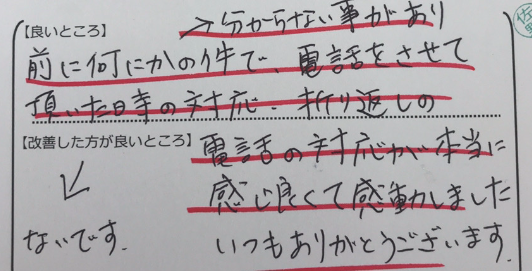 【良いところ】
→分からない事があり
前に何にかの件で、電話をさせて
頂いた時の対応、折り返しの
【改善した方が良いところ】
電話の対応が本当に
感じ良くて感動しました
ないです.
いつもありがとうございます.